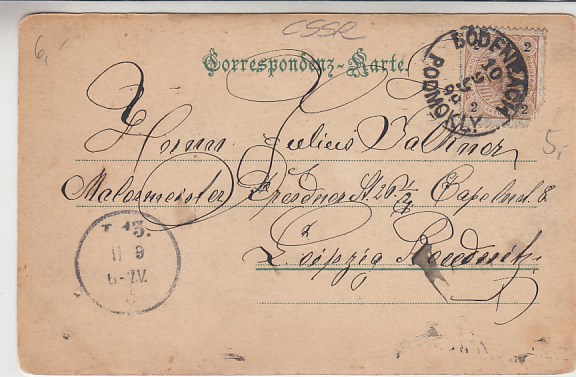 6,
CSSR
Correspondenz-Karte.
BODENBACH
PODMOKLY
10
9
98
2
2
2
5,
Herrn Julius Vallner
Malermeister Dresdner St 26 Capelnst. 8
Leipzig Reudnitz
13.
11 9
6-7V.